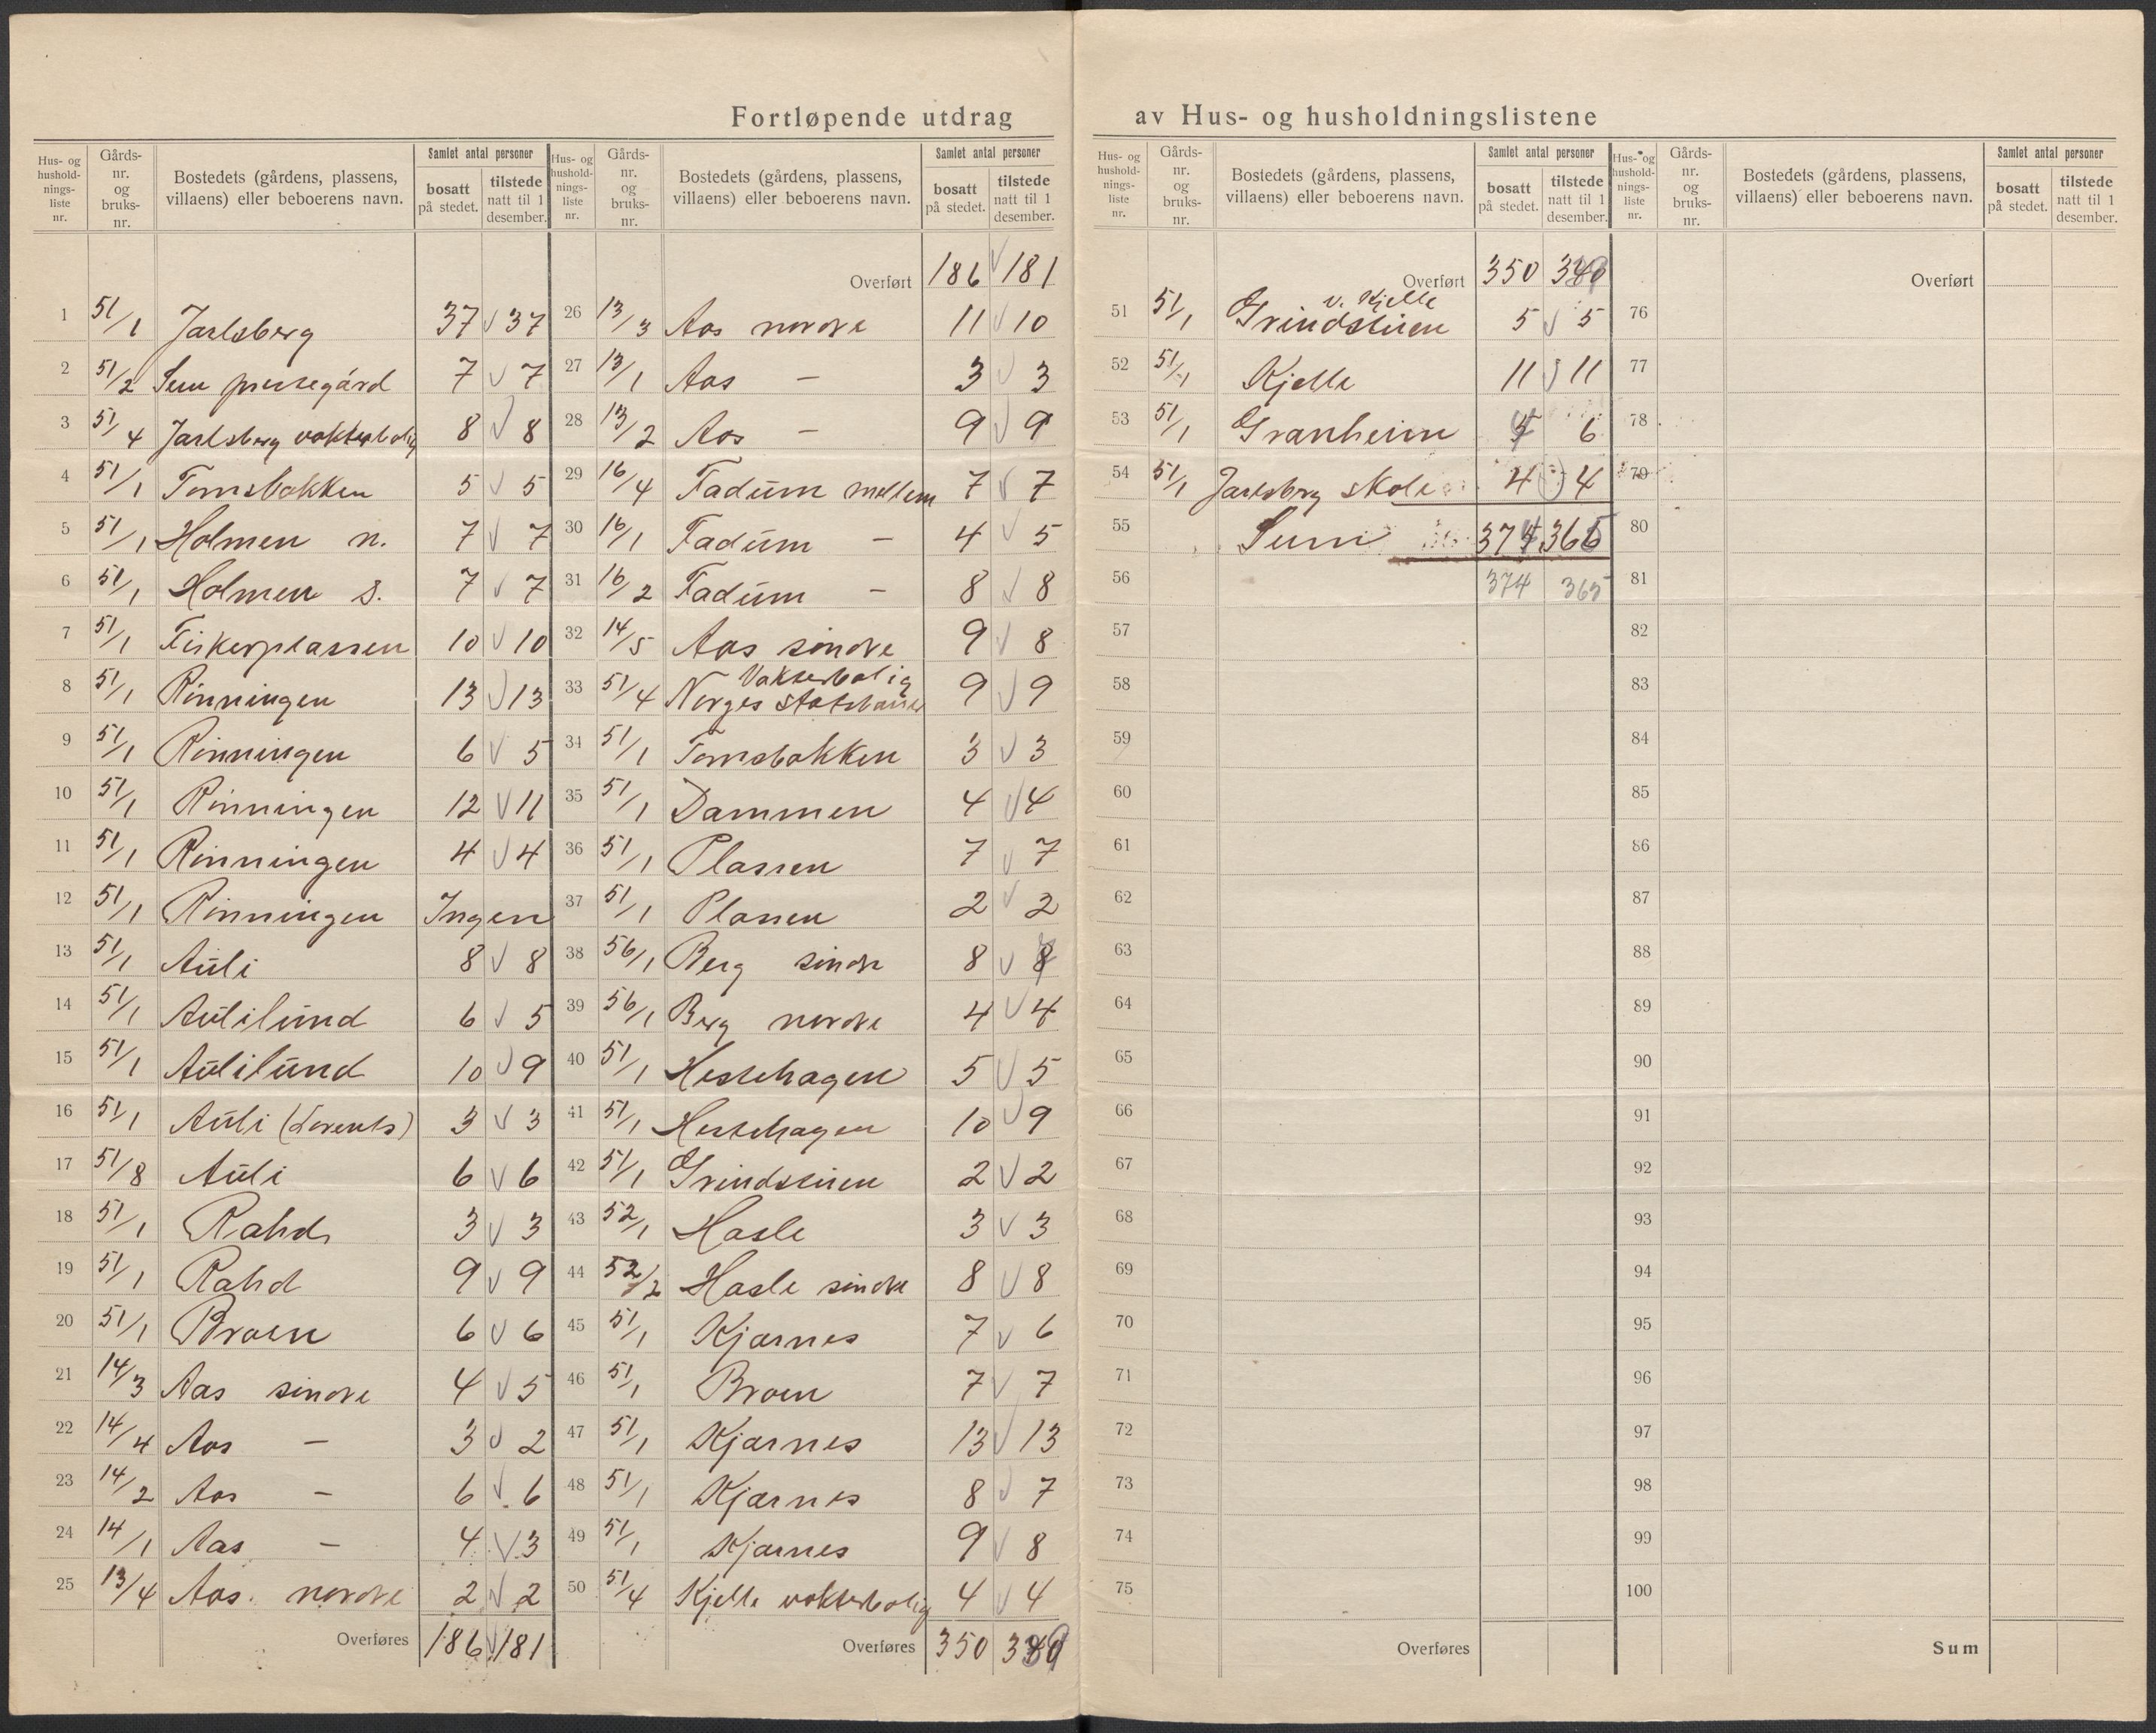 Fortløpende utdrag av Hus- og husholdningslistene
Hus- og hushold- nings- liste nr. | Gårds- nr. og bruks- nr. | Bostedets (gårdens, plassens, villaens) eller beboerens navn. | Samlet antal personer | bosatt på stedet. | tilstede natt til 1 desember.
1 51/1 Jarlsberg 37 37
2 51/2 Sem prestegård 7 7
3 51/4 Jarlsberg vokterbolig 8 8
4 51/1 Tomsbakken 5 5
5 51/1 Holmen n. 7 7
6 51/1 Holmen s. 7 7
7 51/1 Fiskerplassen 10 10
8 51/1 Rönningen 13 13
9 51/1 Rönningen 6 5
10 51/1 Rönningen 12 11
11 51/1 Rönningen 4 4
12 51/1 Rönningen Ingen
13 51/1 Auli 8 8
14 51/1 Aulilund 6 5
15 51/1 Aulilund 10 9
16 51/1 Auli (Lorents) 3 3
17 51/8 Auli 6 6
18 51/1 Råhd 3 3
19 51/1 Råhd 9 9
20 51/1 Broen 6 6
21 14/3 Aas söndre 4 5
22 14/4 Aas — 3 2
23 14/2 Aas — 6 6
24 14/1 Aas — 4 3
25 13/4 Aas nordre 2 2
Overføres 186 181
Hus- og hushold- nings- liste nr. | Gårds- nr. og bruks- nr. | Bostedets (gårdens, plassens, villaens) eller beboerens navn. | Samlet antal personer | bosatt på stedet. | tilstede natt til 1 desember.
Overført 186 181
26 13/3 Aas nordre 11 10
27 13/1 Aas — 3 3
28 13/2 Aas — 9 9
29 16/4 Fadum mellem 7 7
30 16/1 Fadum — 4 5
31 16/2 Fadum — 8 8
32 14/5 Aas söndre 9 8
Vokterbolig
33 51/4 Norges statsbaner 9 9
34 51/1 Tomsbakken 3 3
35 51/1 Dammen 4 4
36 51/1 Plassen 7 7
37 51/1 Plassen 2 2
38 56/1 Berg söndr 8
39 56/1 Berg nordre 4 4
40 51/1 Hestehagen 5 5
41 51/1 Hestehagen 10 9
42 51/1 Grindstuen 2 2
43 52/1 Hasle 3 3
44 52/2 Hasle söndre 8 8
45 51/1 Kjærnes 7 6
46 51/1 Broen 7 7
47 51/1 Kjærnes 13 13
48 51/1 Kjærnes 8 7
49 51/1 Kjærnes 9 8
50 51/4 Kjelle vokterbolig 4 4
Overføres 350 339
Hus- og hushold- nings- liste nr. | Gårds- nr. og bruks- nr. | Bostedets (gårdens, plassens, villaens) eller beboerens navn. | Samlet antal personer | bosatt på stedet. | tilstede natt til 1 desember.
Overført 350 339
v. Kjelle
51 51/1 Grindstuen 5 5
52 51/1 Kjelle 11 11
53 51/1 Granheim 4 6
54 51/1 Jarlsberg skole 4 4
55 Sum 374 365
56 374 365
57
58
59
60
61
62
63
64
65
66
67
68
69
70
71
72
73
74
75
Overføres
Hus- og hushold- nings- liste nr. | Gårds- nr. og bruks- nr. | Bostedets (gårdens, plassens, villaens) eller beboerens navn. | Samlet antal personer | bosatt på stedet. | tilstede natt til 1 desember.
Overført
76
77
78
79
80
81
82
83
84
85
86
87
88
89
90
91
92
93
94
95
96
97
98
99
100
Sum